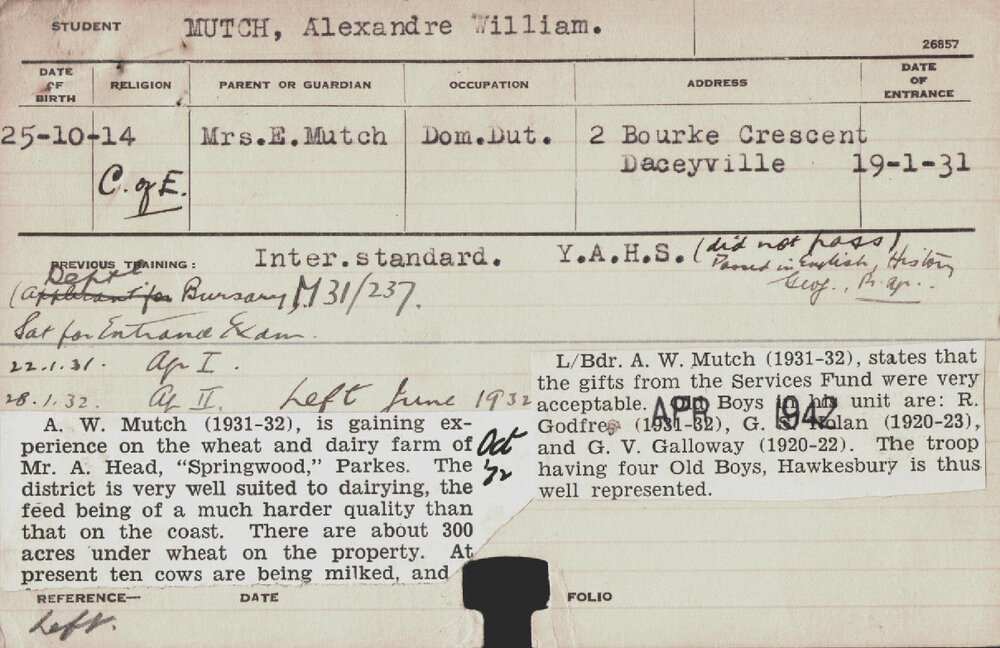 STUDENT MUTCH, Alexandre William.
26857
DATE OF BIRTH RELIGION PARENT OR GUARDIAN OCCUPATION ADDRESS DATE OF ENTRANCE
25-10-14 Mrs.E.Mutch Dom.Dut. 2 Bourke Crescent
Daceyville 19-1-31
C. of E.
PREVIOUS TRAINING: Inter.standard. Y.A.H.S. (did not pass)
Passed in English, History
Geog., Pr. ap..
(Applicant for Bursary, M31/237.
Sat for Entrance Exam.
22.1.31. Ap I.
28.1.32. Ap II. Left June 1932
A. W. Mutch (1931-32), is gaining ex-
perience on the wheat and dairy farm of
Mr. A. Head, “Springwood,” Parkes. The
district is very well suited to dairying, the
feed being of a much harder quality than
that on the coast. There are about 300
acres under wheat on the property. At
present ten cows are being milked, and
Oct
'32
L/Bdr. A. W. Mutch (1931-32), states that
the gifts from the Services Fund were very
acceptable. Boys in his unit are: R.
Godfrey (1931-32), G. Nolan (1920-23),
and G. V. Galloway (1920-22). The troop
having four Old Boys, Hawkesbury is thus
well represented.
APR 1942
REFERENCE— DATE FOLIO
Left.